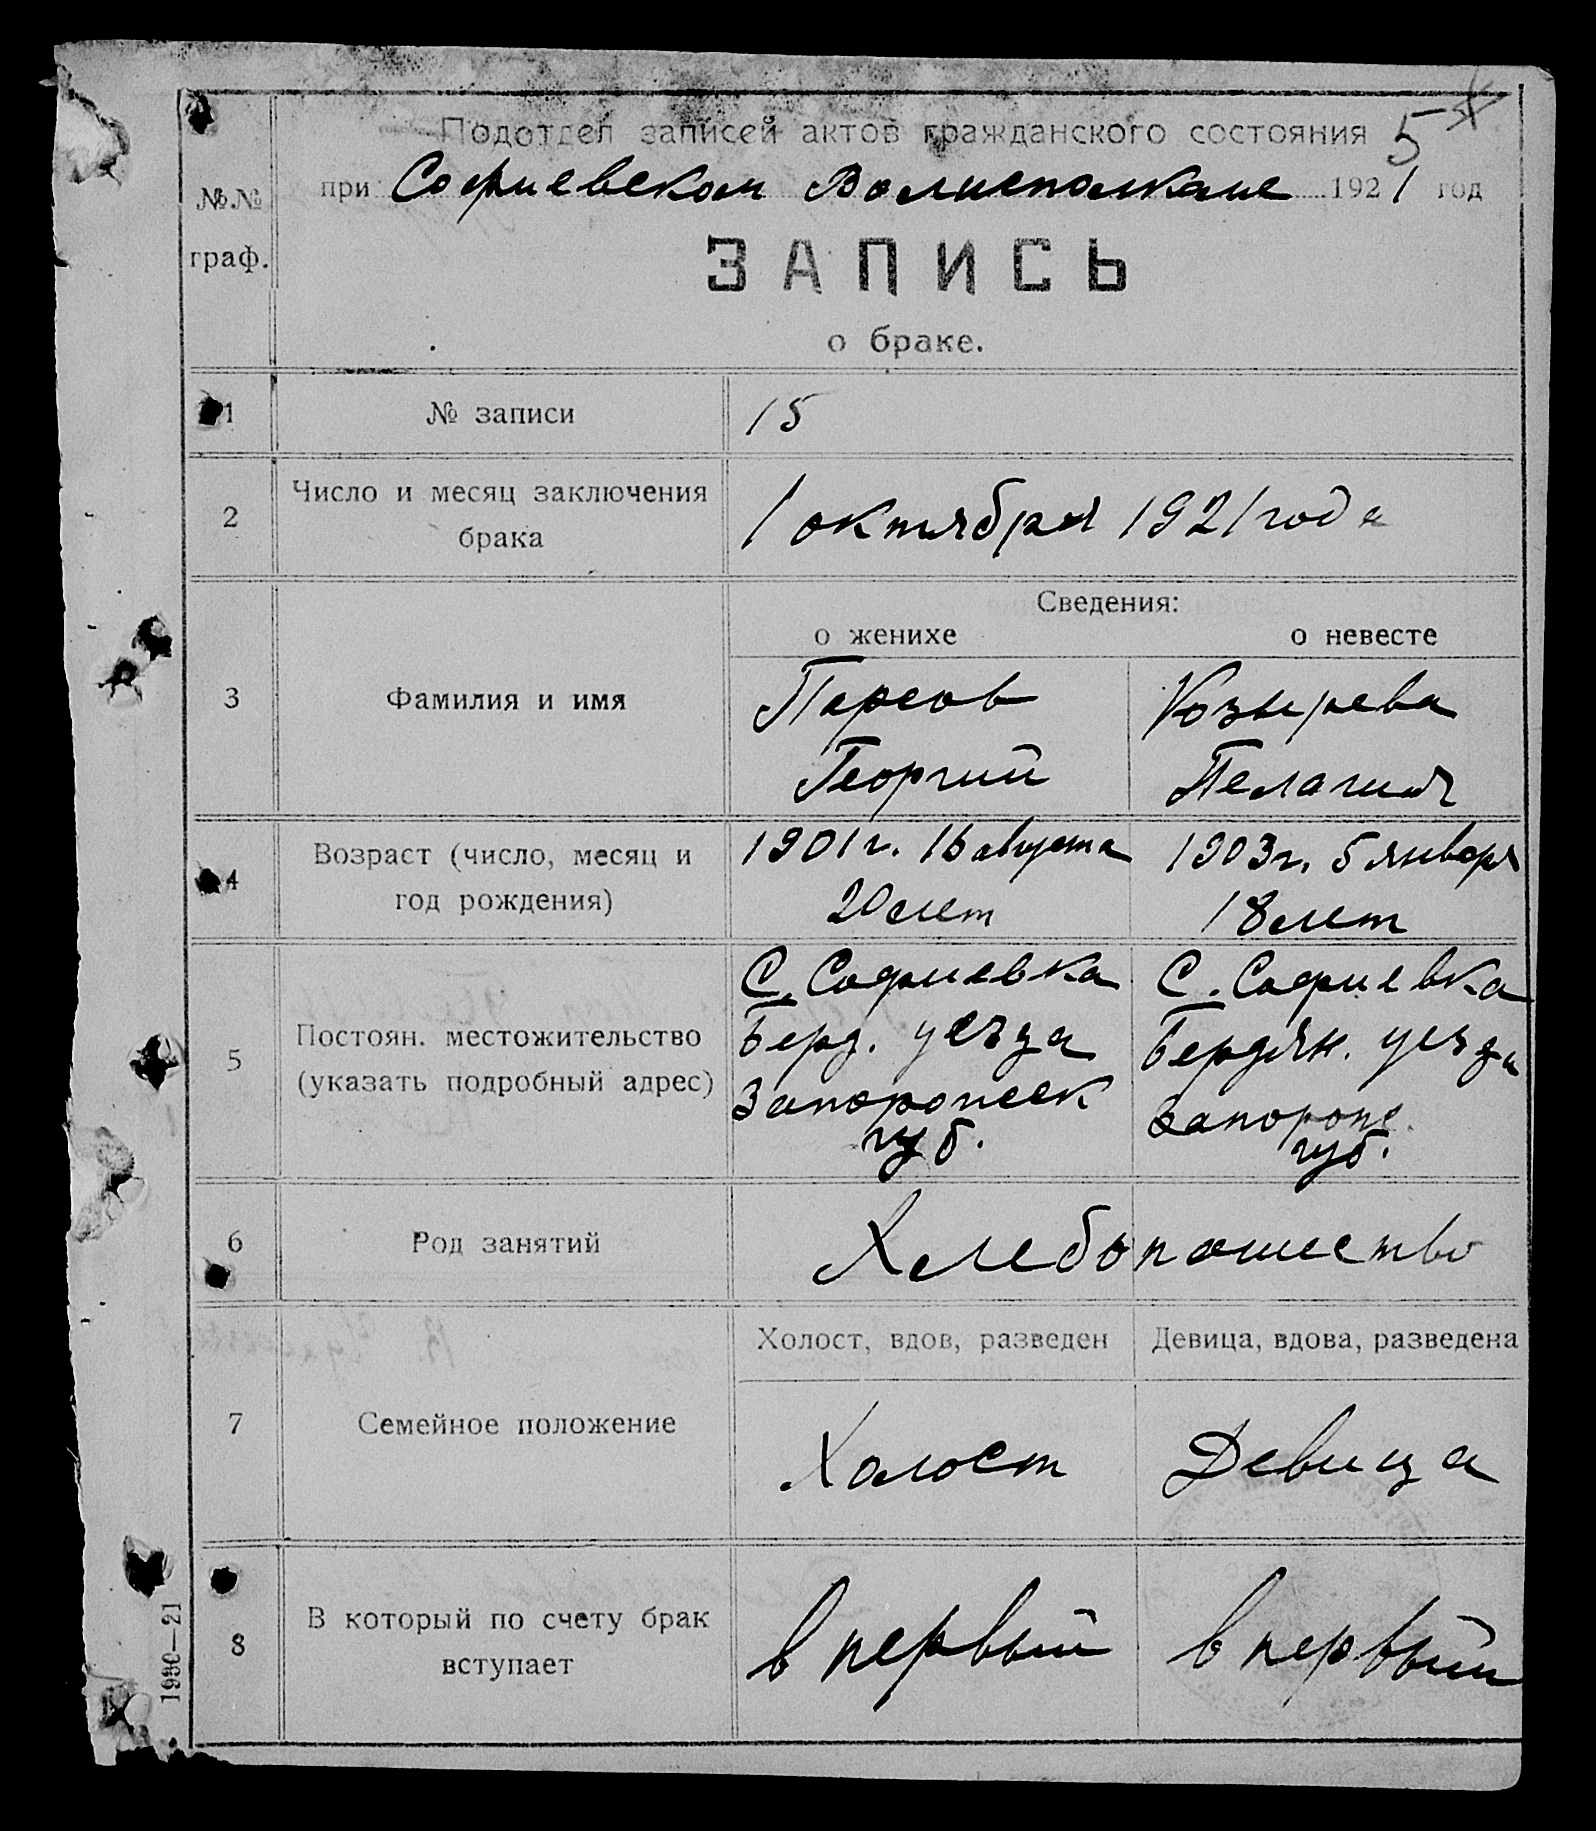 Подотдел записей актов гражданского состояния 5
при Софиевском Волисполкоме 1921 год
№№
граф.
ЗАПИСЬ
о браке.
1 № записи 15
2 Число и месяц заключения
брака
1 октября 1921 года
Сведения:
о женихе о невесте
3 Фамилия и имя
Парсов Козырева
Георгий Пелагия
4 Возраст (число, месяц и
год рождения)
1901 г. 16 августа 1903 г. 5 января
20 лет 18 лет
5 Постоян. местожительство
(указать подробный адрес)
С. Софиевка С. Софиевка
Берд. уезда Бердян. уезда
Запорожск Запорож.
губ. губ.
6 Род занятий Хлебопашество
Холост, вдов, разведен Девица, вдова, разведена
7 Семейное положение
Холост Девица
8 В который по счету брак
вступает
в первый в первый